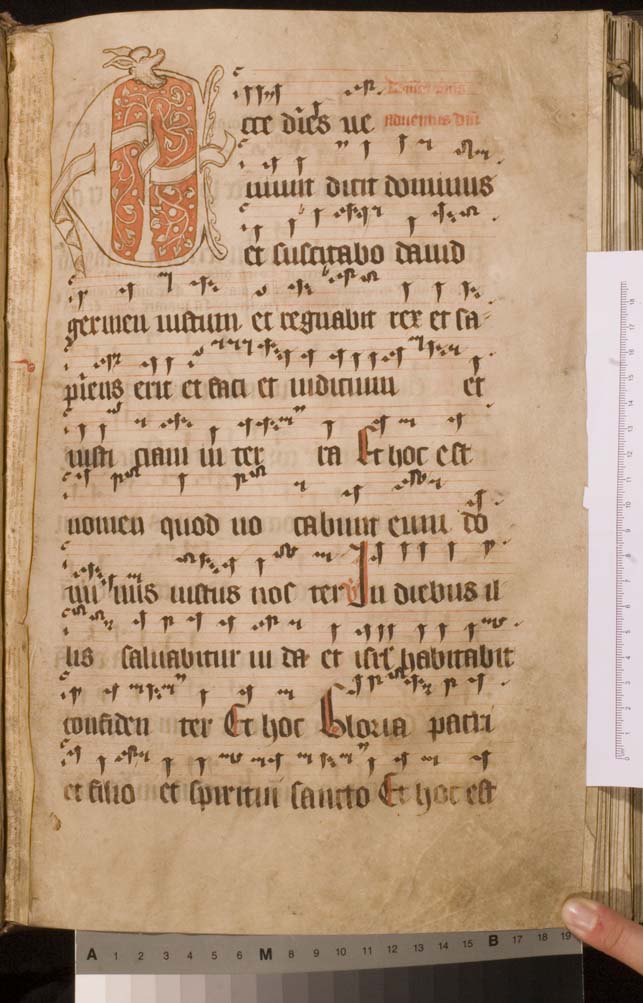 Ecce dies ve
niunt dicit dominus
et suscitabo david
germen iustum et regnabit rex et sa
piens erit et faci et iudicium et
iusti ciam in ter ra Et hoc est
nomen quod vo cabunt eum do
mi nus iustus nos ter In diebus il
lis salvabitur iuda et isrl habitabit
confiden ter Et hoc Gloria patri
et filio et spiritui sancto Et hoc est
A 1 2 3 4 5 6 M 8 9 10 11 12 13 14 15 B 17 18 19